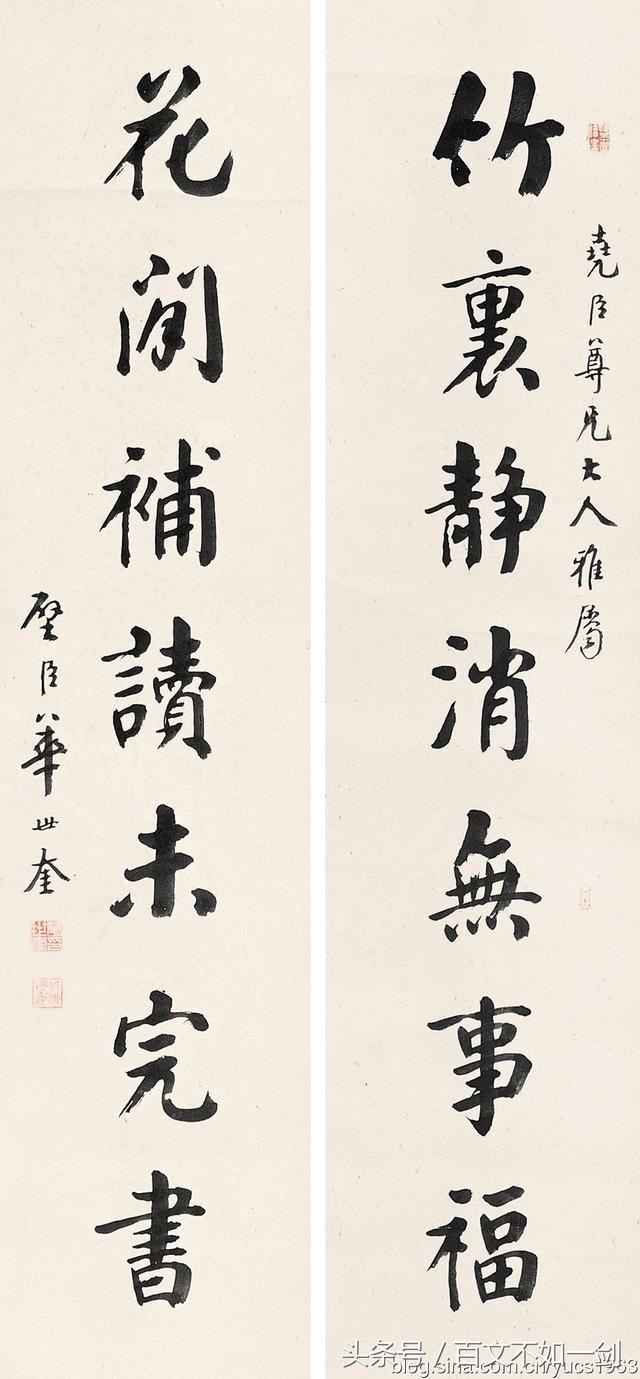 堯臣尊兄大人雅屬
竹裏静消無事福
花間補讀未完書
壁臣華世奎
头条号 / 百文不如一剑
blog.sina.com.cn/yucs1953